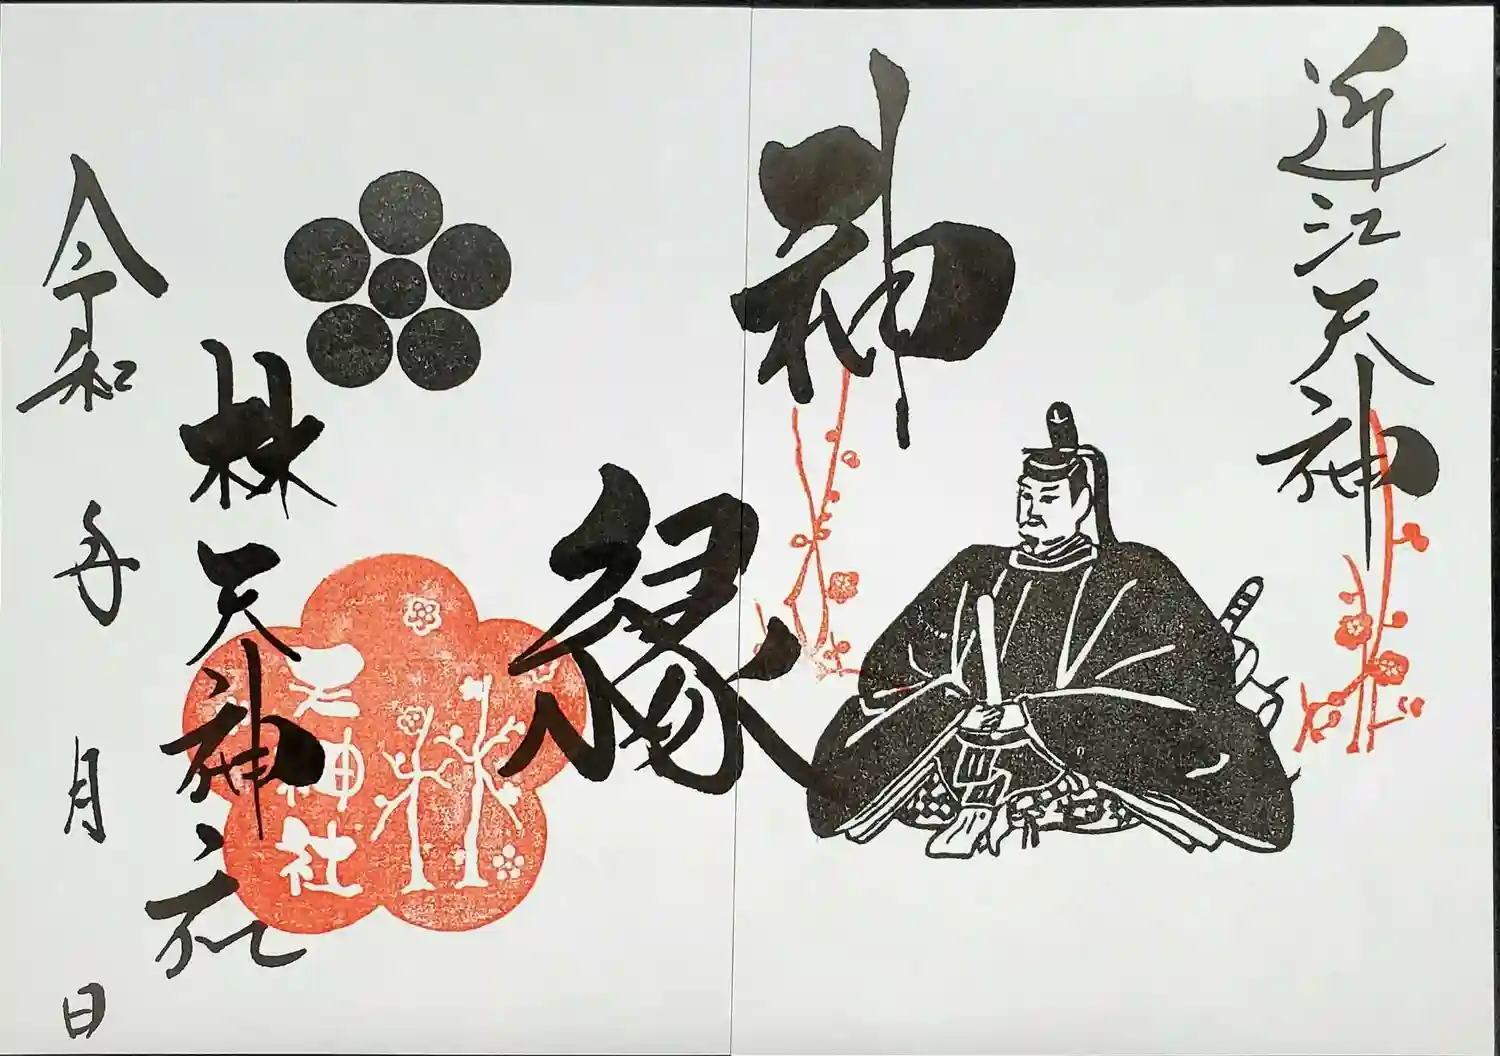 近江天神
神縁
林天神社
天神社
令和 年 月 日